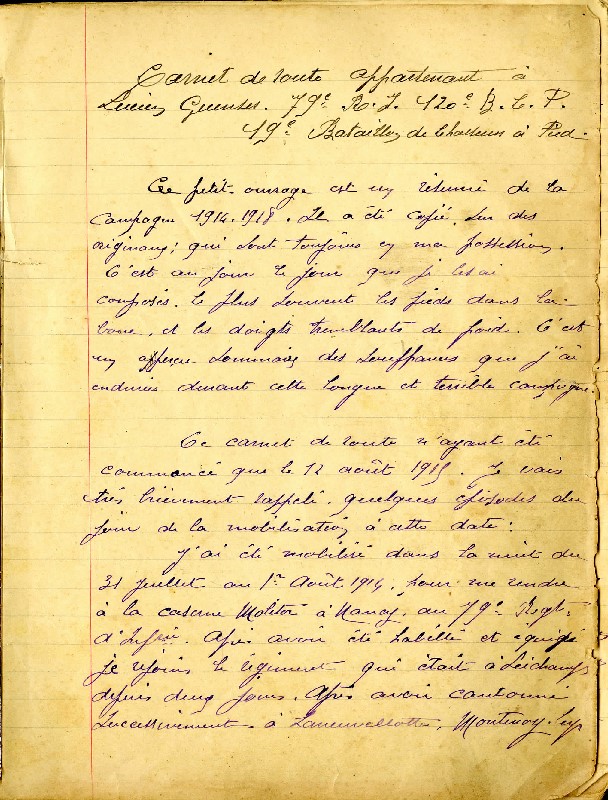 Carnet de route appartenant à
Lucien 79e R.I. 120e B.C.P.
49e Bataillon de Chasseurs à Pied.
Ce petit ouvrage est un résumé de la
Campagne 1914.1918. Il a été copié, sur des
originaux; qui sont toujours en ma possession.
C'est au jour le jour que je les ai
composés. Le plus souvent les pieds dans la
boue, et les doigts tremblants de froid. C'est
un apperçu sommaire des souffrances que j'ai
endurées durant cette longue et terrible campagne.
Ce carnet de route n'ayant été
commencé que le 12 août 1915. Je vais
très brièvement rappelé, quelques épisodes du
jour de la mobilisation à cette date:
J'ai été mobilisé dans la nuit du
31 Juillet au 1er Août 1914, pour me rendre
à la caserne Molitor à Nancy, au 79e Regt.
d'Inf. Après avoir été habillé et équipé
je rejoins le régiment qui était à
depuis deux jours. Après avoir cantonné
successivement à Laneuvelotte, Montenoy, Ley